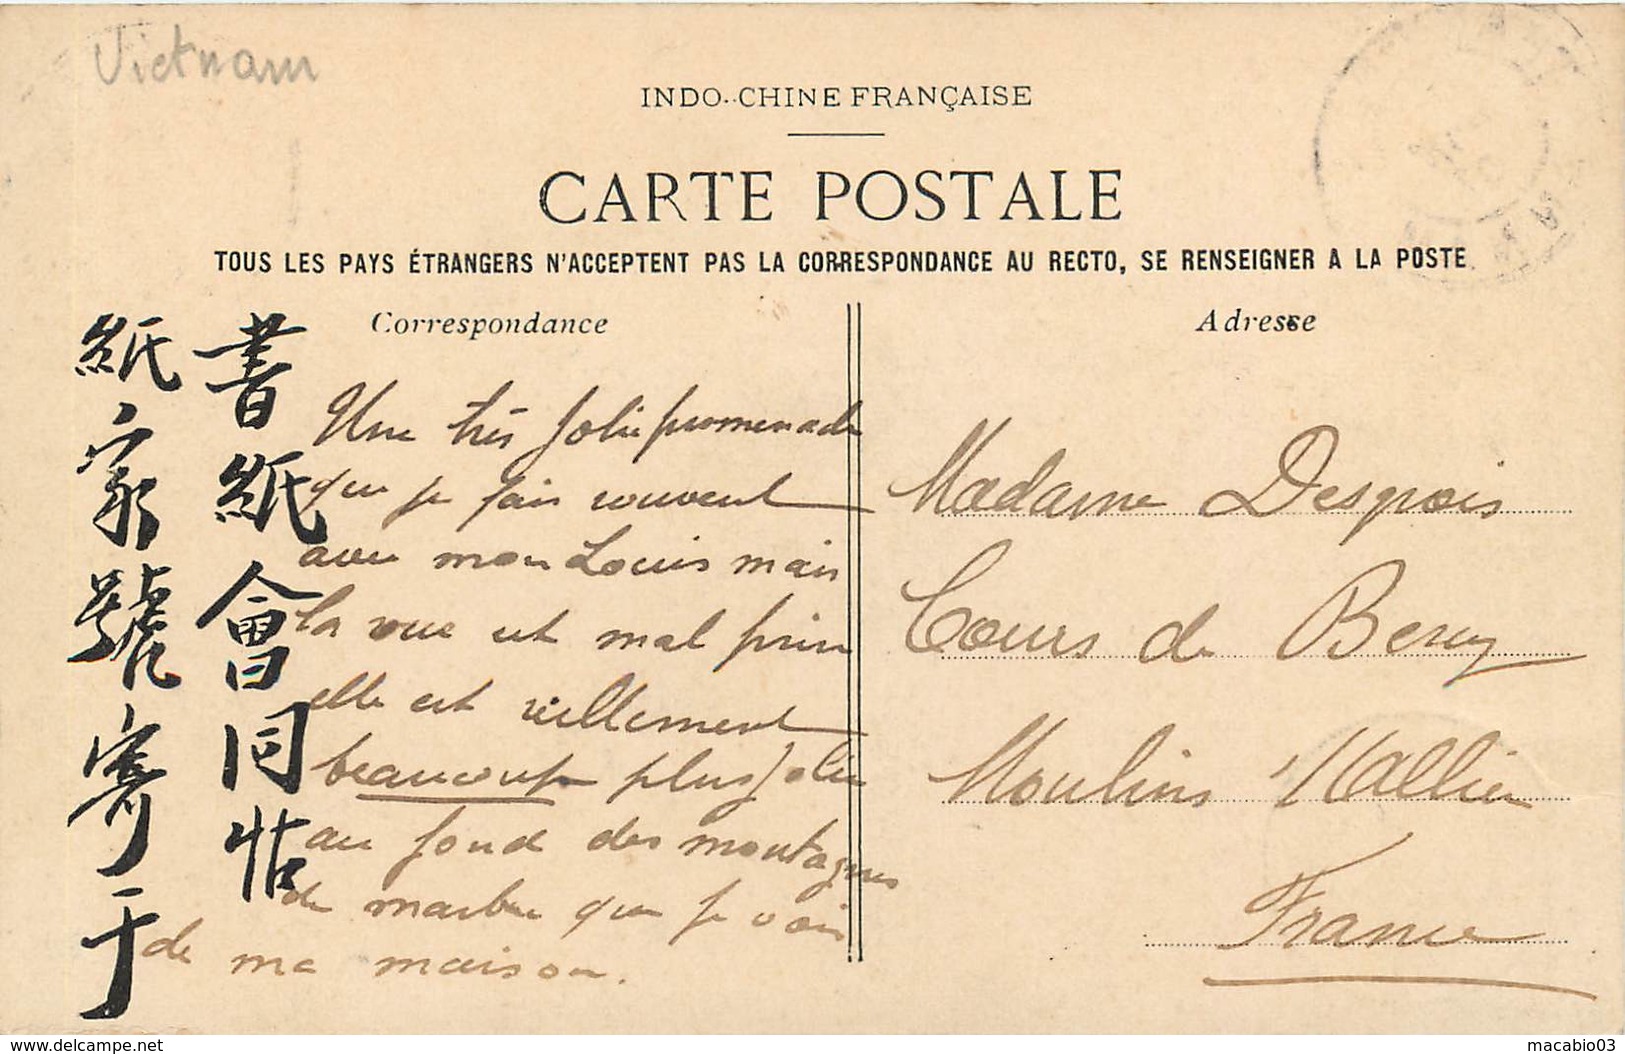 Vietnam
INDO-CHINE FRANÇAISE
CARTE POSTALE
TOUS LES PAYS ÉTRANGERS N'ACCEPTENT PAS LA CORRESPONDANCE AU RECTO, SE RENSEIGNER A LA POSTE
Correspondance
書紙會同帖
紙家號寄于
Une très jolie promenade
que je fais souvent
avec mon Louis mais
la vue est mal prise
elle est réellement
beaucoup plus jolie
au fond des montagnes
de marbre que je vois
de ma maison.
Adresse
Madame Despois
Cours de Bercy
Moulins Allier
France
delcampe.net
macabio03